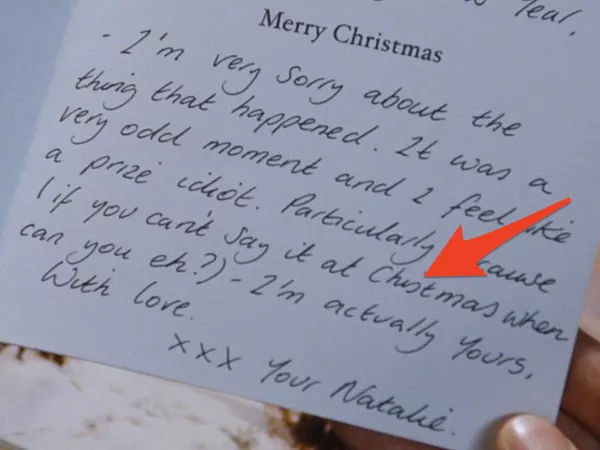 Year.
Merry Christmas
- I'm very sorry about the
thing that happened. It was a
very odd moment and I feel like
a prize idiot. Particularly cause
(if you can't say it at Chistmas when
can you eh?) - I'm actually yours,
With love.
xxx Your Natalie.